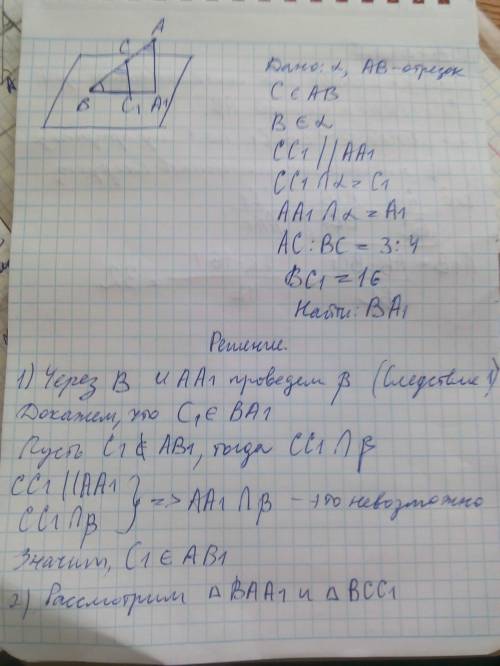 A
C
B
C1
A1
Дано: α, AB-отрезок
C ∈ AB
B ∈ α
CC1 || AA1
CC1 ∩ α = C1
AA1 ∩ α = A1
AC : BC = 3:4
BC1 = 16
Найти: BA1
Решение.
1) Через B и AA1 проведем β (Следствие 1)
Докажем, что C1 ∈ BA1
Пусть C1 ∉ AB1, тогда CC1 ∩ β
CC1 || AA1
CC1 ∩ β } => AA1 ∩ β - это невозможно
Значит, C1 ∈ AB1
2) Рассмотрим △ BAA1 и △ BCC1